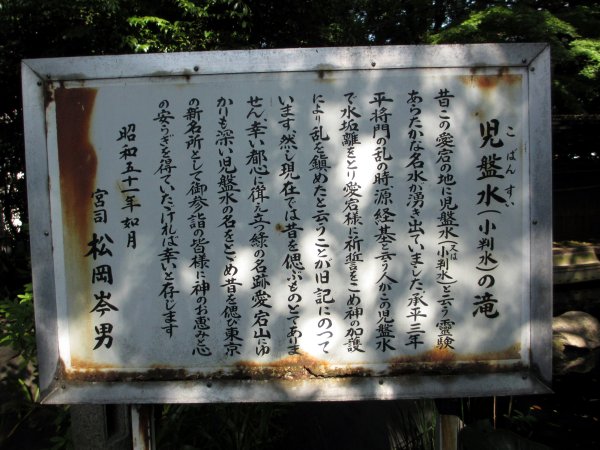 児盤水(小判水)の滝
こばんすい
昔この愛宕の地に児盤水(又は小判水)と云う霊験
あらたかな名水が湧き出ていました承平三年
平将門の乱の時、源経基と云う人がこの児盤水
で水垢離をとり愛宕様に祈誓をこめ神の加護
により乱を鎮めたと云うことが旧記にのって
います、然し現在では昔を偲ぶものとてありま
せん、幸い都心に聳え立つ緑の名跡愛宕山にゆ
かりも深い児盤水の名をとどめ昔を偲び東京
の新名所として御参詣の皆様に神のお恵みと心
の安らぎを得ていただければ幸いと存じます
昭和五十一年如月
宮司 松岡岑男